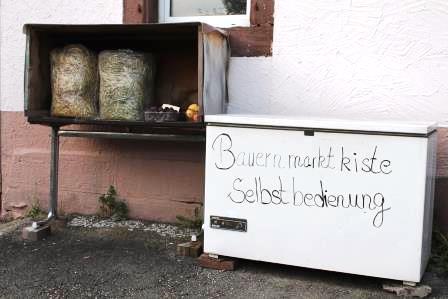 Bauernmarktkiste
Selbstbedienung